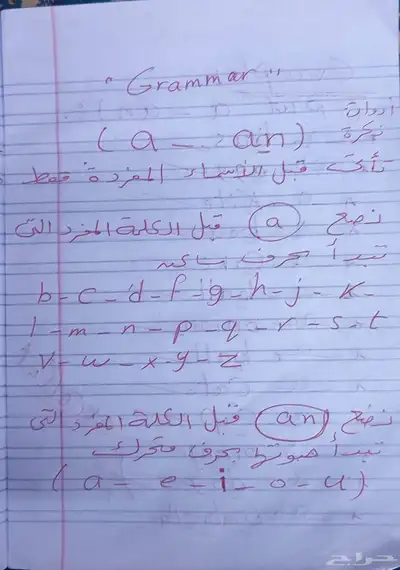 "Grammar"
أدوات
نكرة
(a - an)
تأتى قبل الأسماء المفردة فقط
نضع (a) قبل الكلمة المفرد التى
تبدأ بحرف ساكن
b - c - d - f - g - h - j - k -
l - m - n - p - q - r - s - t
v - w - x - y - z
نضع (an) قبل الكلمة المفرد التى
تبدأ صوتها بحرف متحرك
(a - e - i - o - u)
حراج